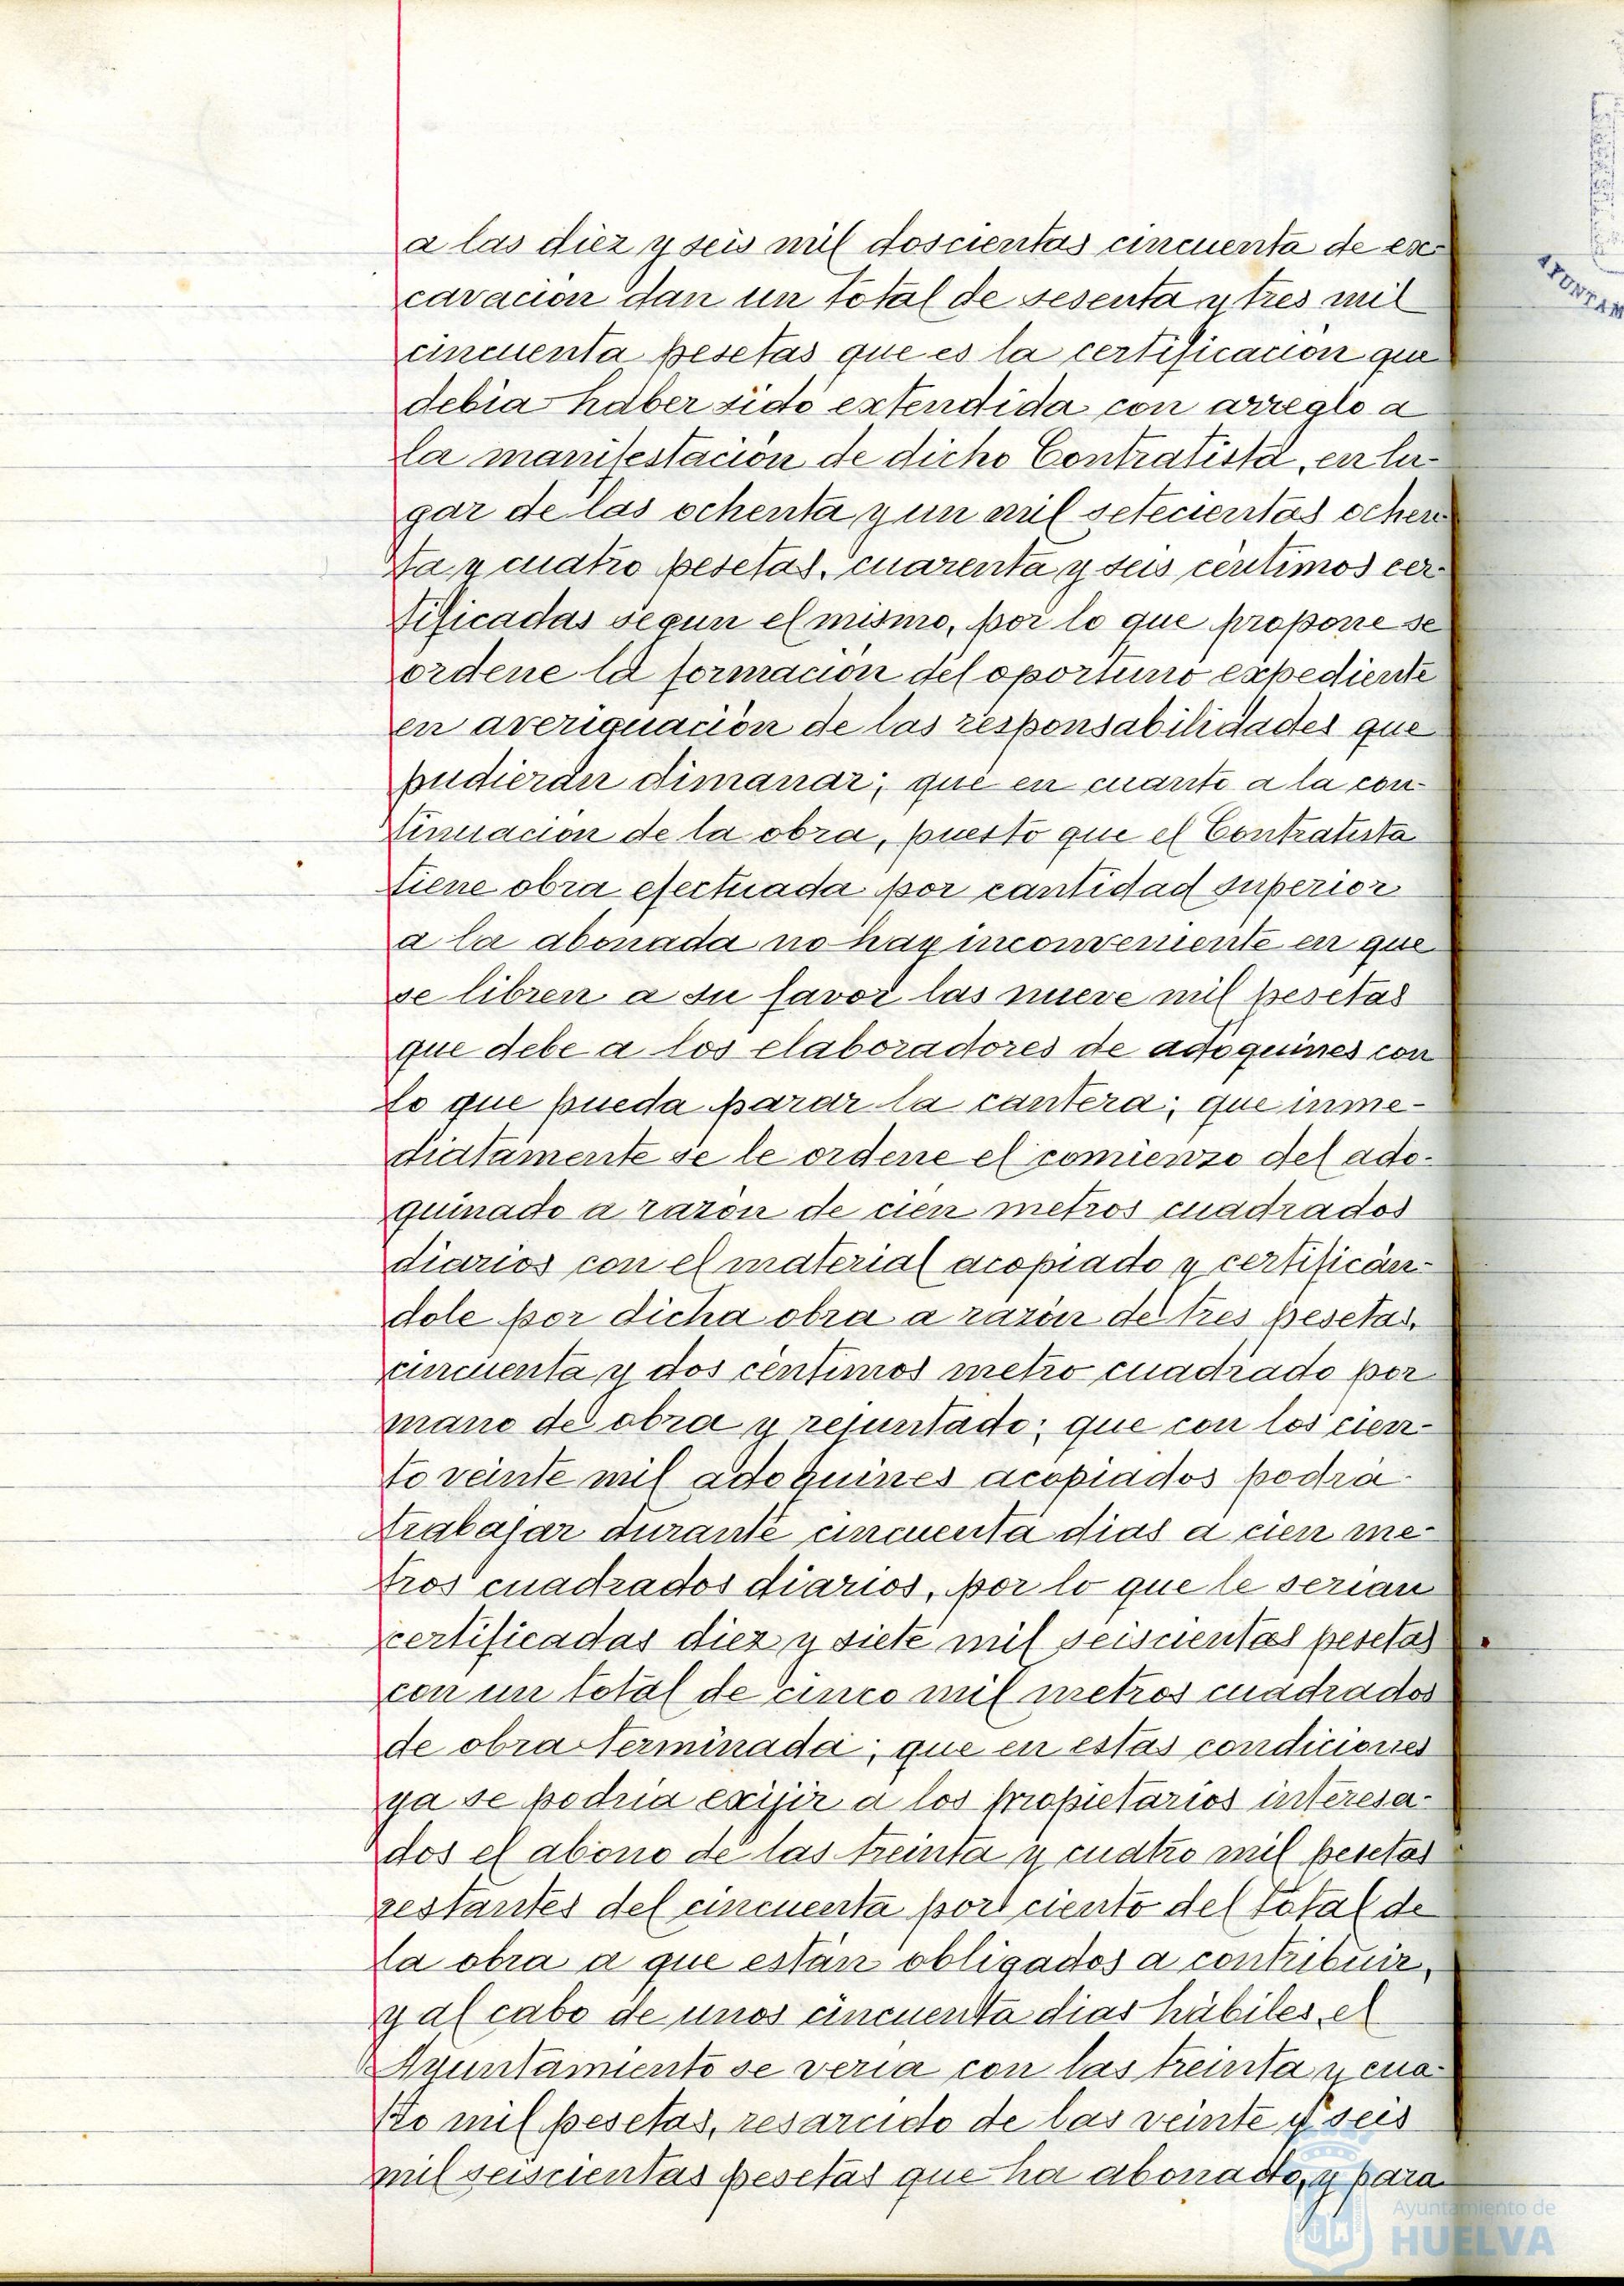 a las diez y seis mil doscientas cincuenta de ex-
cavación dan un total de sesenta y tres mil
cincuenta pesetas que es la certificación que
debia haber sido extendida con arreglo a
la manifestación de dicho Contratista, en lu-
gar de las ochenta y un mil setecientas ochen
ta y cuatro pesetas, cuarenta y seis céntimos cer-
tificadas segun el mismo, por lo que propone se
ordene la formación del oportuno expediente
en averiguación de las responsabilidades que
pudieran dimanar; que en cuanto a la con-
tinuacion de la obra, puesto que el Contratista
tiene obra efectuada por cantidad superior
a la abonada no hay inconveniente en que
se libren a su favor las nueve mil pesetas
que debe a los elaboradores de adoquines con
lo que pueda parar la cantera; que inme-
diatamente se le ordene el comienzo del ado-
quinado a razón de cien metros cuadrados
diarios con el material acopiado y certificán-
dole por dicha obra a razón de tres pesetas,
cincuenta y dos céntimos metro cuadrado por
mano de obra y rejuntado; que con los cien-
to veinte mil adoquines acopiados podrá
trabajar durante cincuenta dias a cien me-
tros cuadrados diarios, por lo que le serian
certificadas diez y siete mil seiscientas pesetas
con un total de cinco mil metros cuadrados
de obra terminada; que en estas condiciones
ya se podria exijir a los propietarios interesa-
dos el abono de las treinta y cuatro mil pesetas
restantes del cincuenta por ciento del total de
la obra a que están obligados a contribuir,
y al cabo de unos cincuenta dias hábiles el
Ayuntamiento se veria con las treinta y cua-
tro mil pesetas, resarcido de las veinte y seis
mil seiscientas pesetas que ha abonado, y para
AYUNTAM
Ayuntamiento de
HUELVA